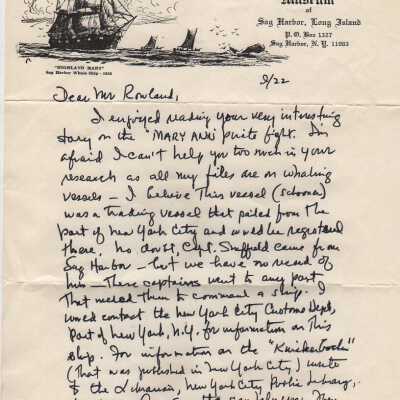 Museum
of
Sag Harbor, Long Island
P. O. Box 1327
Sag Harbor, N. Y. 11963
"HIGHLAND MARY"
Sag Harbor Whale Ship - 1850
9/22
Dear Mr Rowland,
I enjoyed reading your very interesting
story on the "MARY ANN" pirite fight. I'm
afraid I can't help you too much in your
research as all my files are on whaling
vessels - I believe this vessel (schooner)
was a trading vessel that sailed from the
port of New York City and would be registered
there. No doubt, Capt. Sheffield came from
Sag Harbor - but we have no record of
him - These captains went to any port
that needed them to command a ship. I
would contact the New York City Customs Dept,
Port of New York, N.Y. for information on this
ship. For information on the "Knickerbocker"
(that was published in New York City) write
to the Librarian, New York City Public Library,